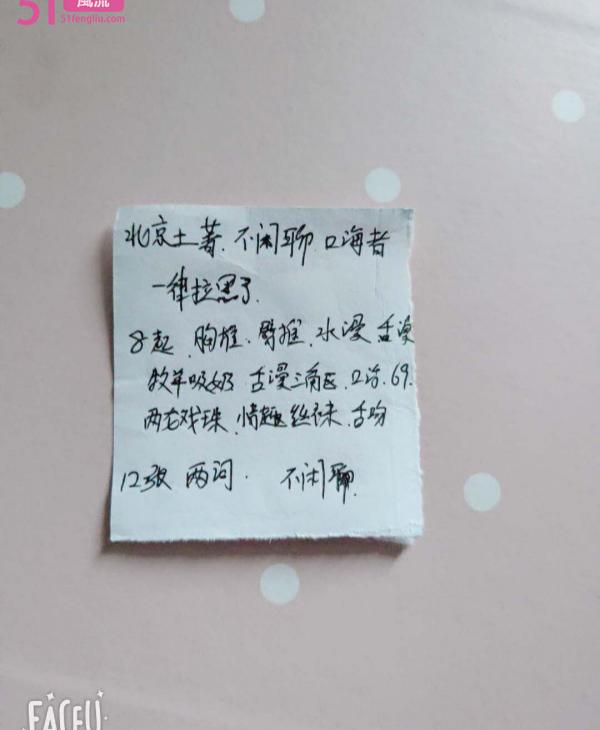 51
風流
51fengliu.com
北京土著.不闲聊.口嗨者
一律拉黑了.
8起.胸推.臀推.水漫舌漫
牧羊吸奶 舌漫三角区.口活.69.
两龙戏珠.情趣丝袜.舌吻
12张 两词. 不闲聊.
FACEU